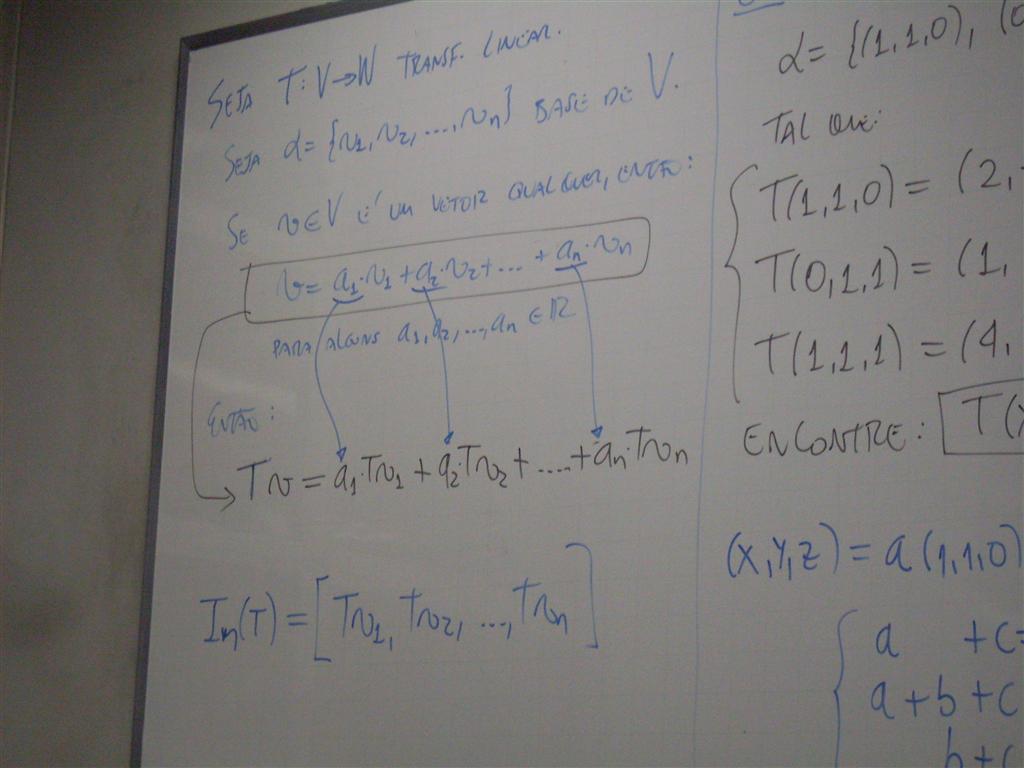 SEJA T: V→W TRANSF. LINEAR.
SEJA α = {v₁, v₂, ..., vₙ} BASE DE V.
SE v∈V É UM VETOR QUALQUER, ENTÃO:
v = a₁·v₁ + a₂·v₂ + ... + aₙ·vₙ
PARA ALGUNS a₁, a₂, ..., aₙ ∈ ℝ
ENTÃO:
Tv = a₁·Tv₁ + a₂·Tv₂ + .... + aₙ·Tvₙ
Im(T) = [Tv₁, Tv₂, ..., Tvₙ]
α = {(1,1,0), (0
TAL QUE:
T(1,1,0) = (2,
T(0,1,1) = (1,
T(1,1,1) = (4,
ENCONTRE: T(x
(x,y,z) = a(1,1,0)
a + c =
a + b + c
b + c